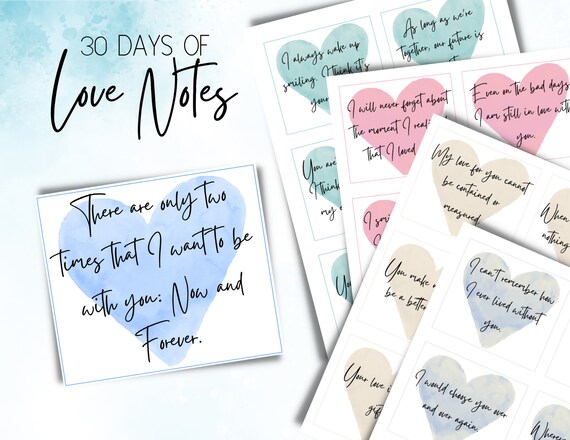 30 DAYS OF
Love Notes
There are only two
times that I want to be
with you: Now and
Forever.
I always wake up
smiling. I think it's
As long as we're
together, our future is
You are
I think
my
I will never forget about
the moment I
that I loved
Even on the bad days
I am still in love with
you.
I
My love for you cannot
be contained or
measured.
When
nothing
You make
be a better
Your love
I can't remember how
I ever lived without
you.
I would choose you over
and over again.